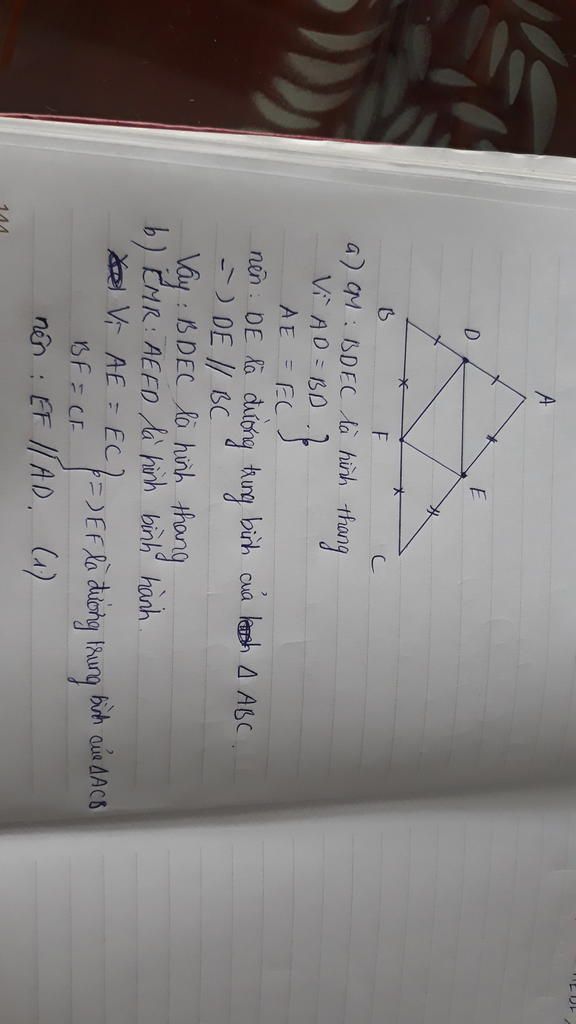 A
D
E
B
F
C
a) CM: BDEC là hình thang
Vì AD = BD }
AE = EC
nên: DE là đường trung bình của Δ ABC.
=> DE // BC
Vậy: BDEC là hình thang
b) CMR: AEFD là hình bình hành.
Vì AE = EC } => EF là đường trung bình của ΔACB
BF = CF
nên: EF // AD. (1)